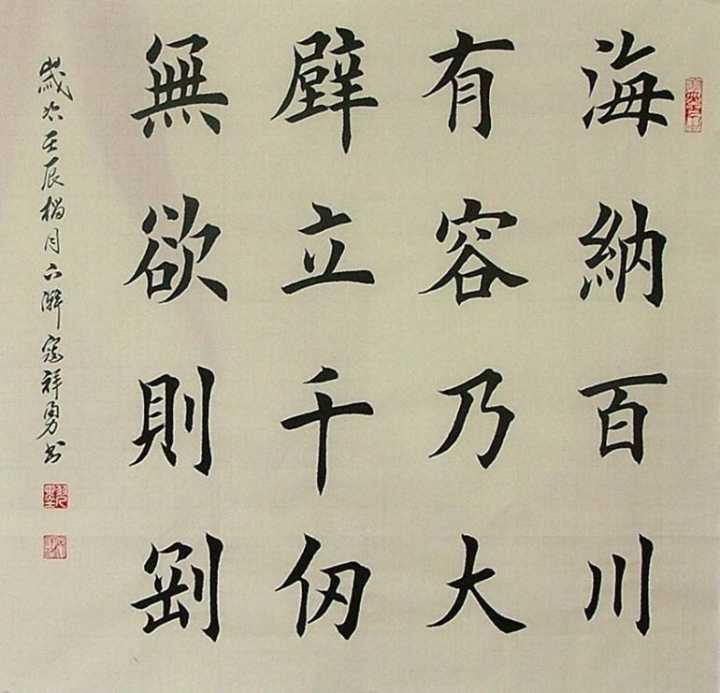 海納百川
有容乃大
壁立千仞
無欲則剛
歲次壬辰榴月 寇祥勇书